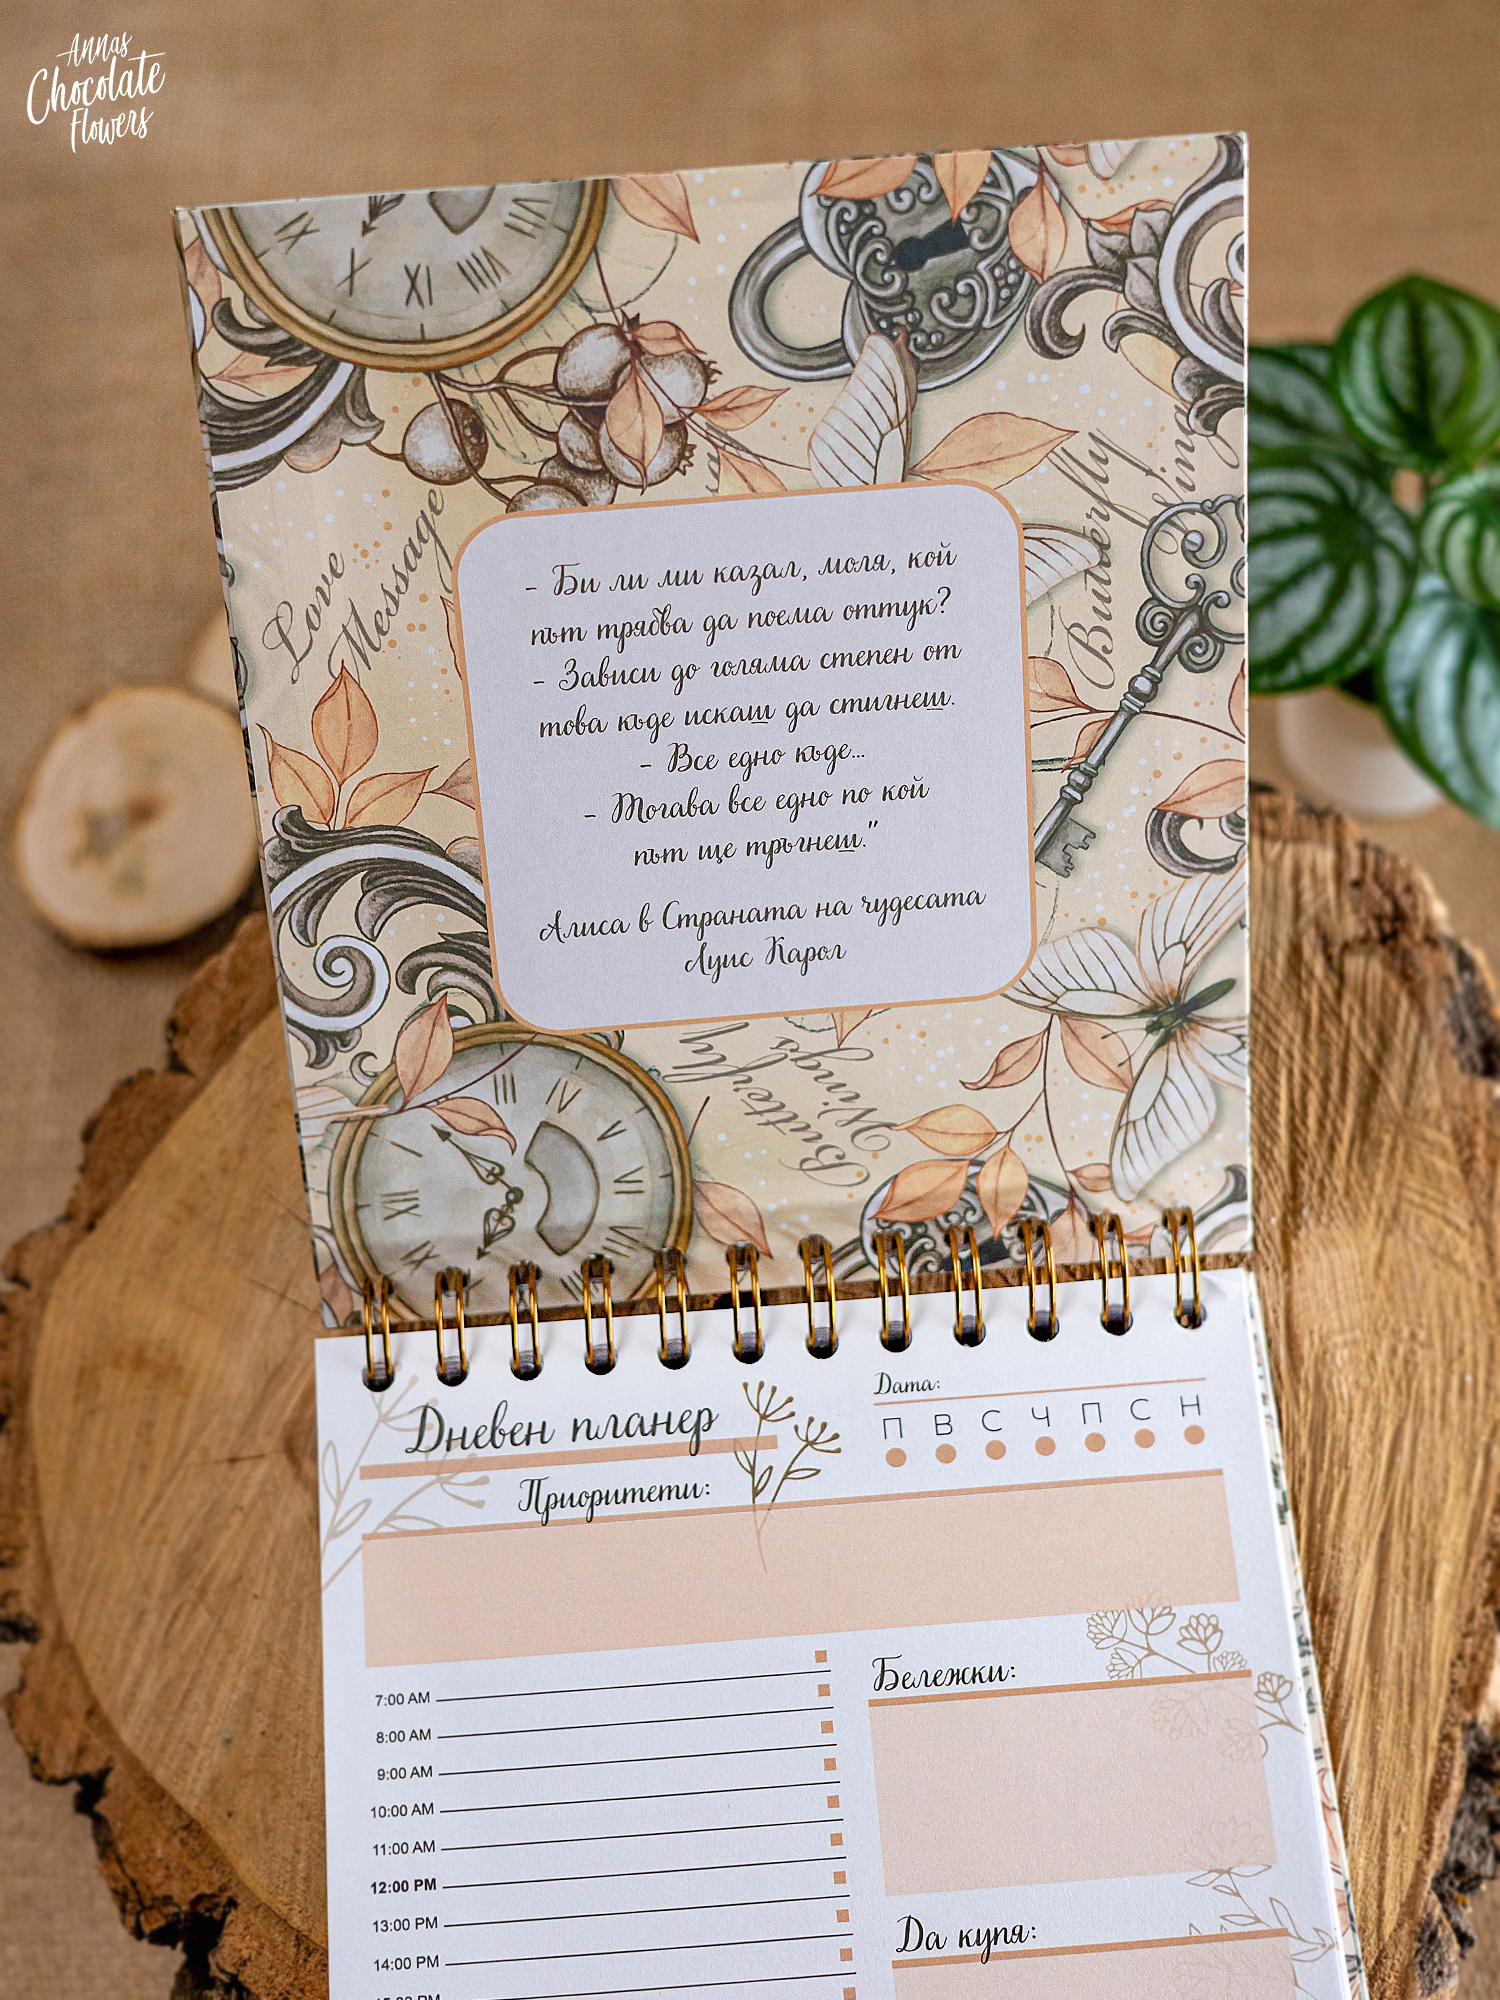 Annas
Chocolate
Flowers
Love
Message
Butterfly
- Би ли ми казал, моля, кой
път трябва да поема оттук?
- Зависи до голяма степен от
това къде искаш да стигнеш.
- Все едно къде...
- Тогава все едно по кой
път ще тръгнеш."
Алиса в Страната на чудесата
Луис Карол
Butterfly
Wings
Дневен планер
Дата:
П В С Ч П С Н
Приоритети:
7:00 AM
8:00 AM
9:00 AM
10:00 AM
11:00 AM
12:00 PM
13:00 PM
14:00 PM
Бележки:
Да купя: